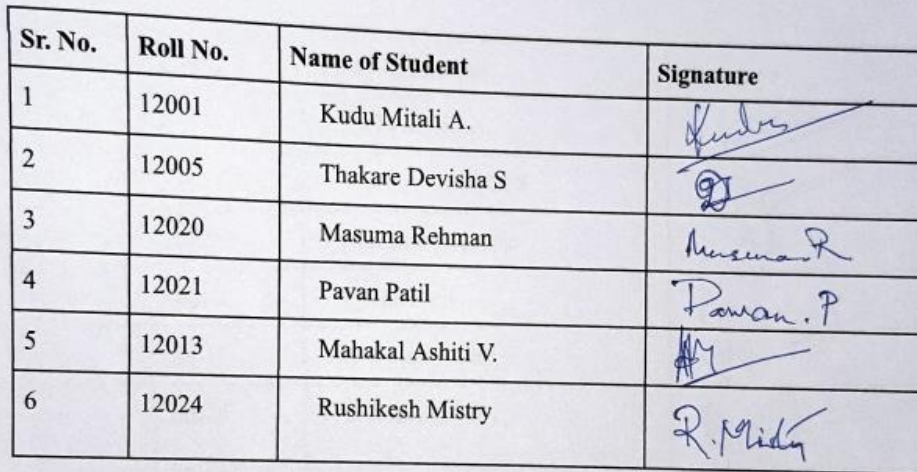 Sr. No. Roll No. Name of Student Signature
1 12001 Kudu Mitali A. Kudu
2 12005 Thakare Devisha S
3 12020 Masuma Rehman Masuma.R
4 12021 Pavan Patil Pawan.P
5 12013 Mahakal Ashiti V. AM
6 12024 Rushikesh Mistry R.Mistry